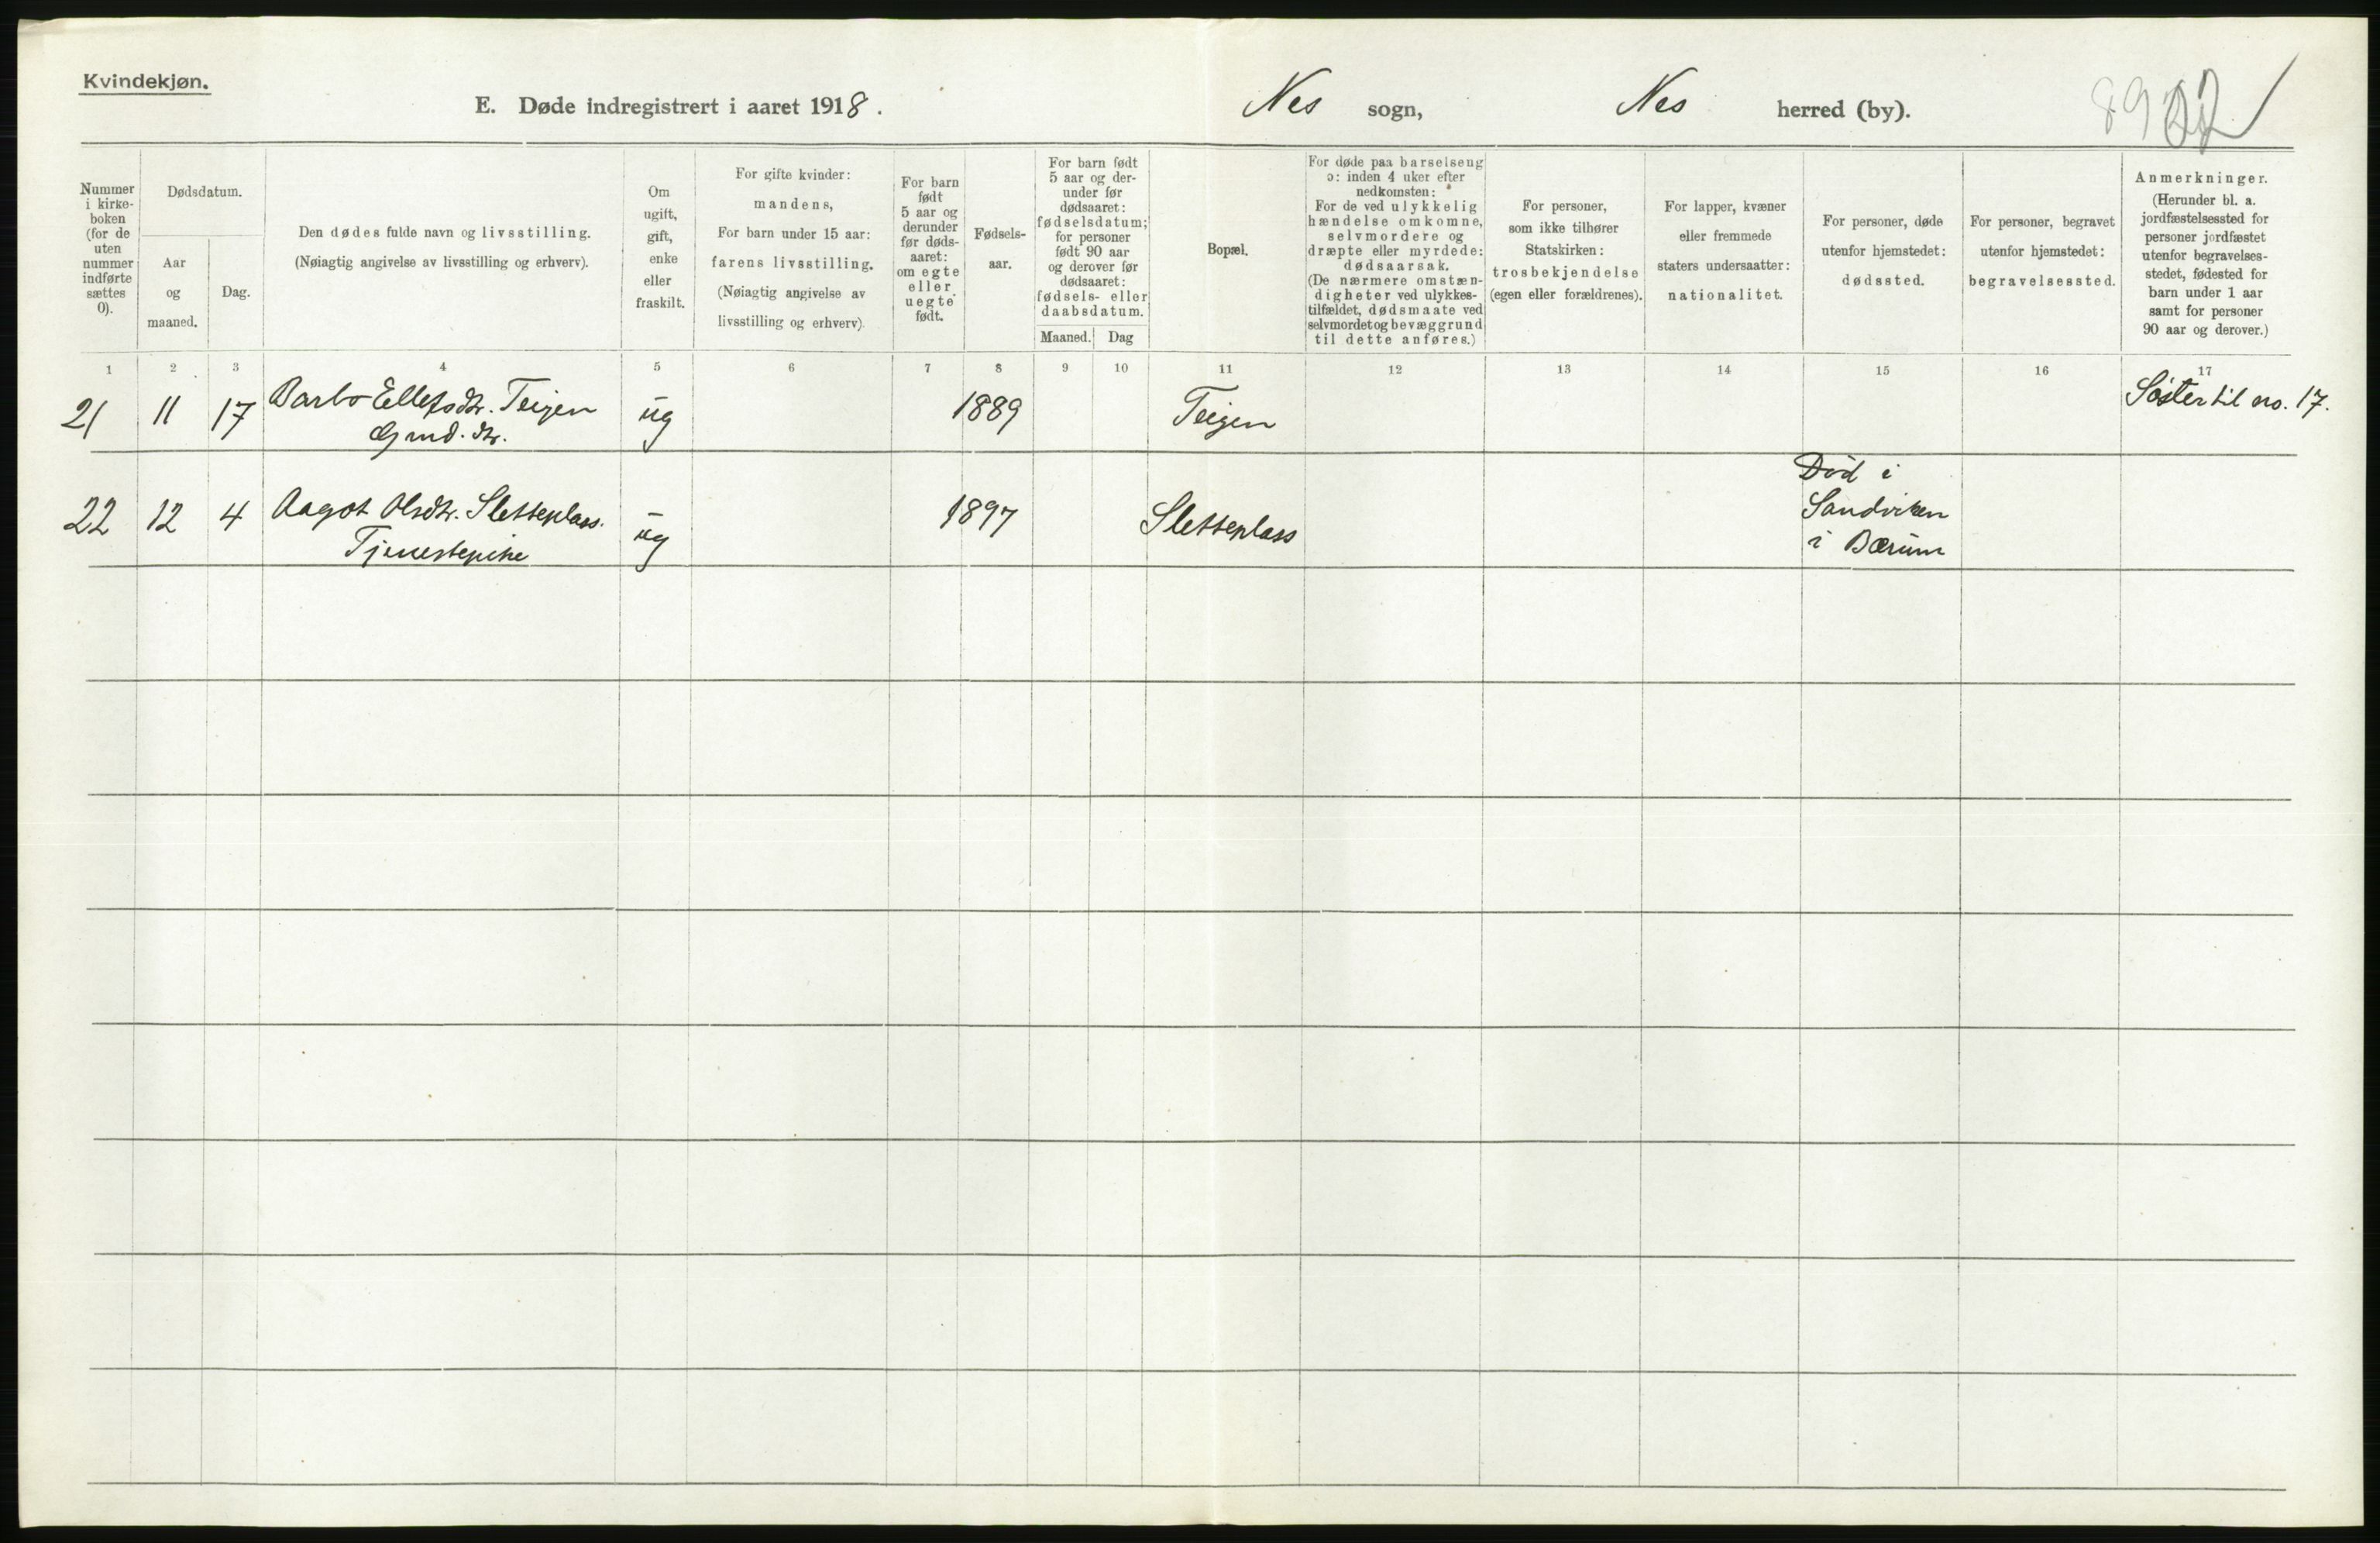 Kvindekjøn.
E. Døde indregistrert i aaret 1918.
Nes sogn, Nes herred (by).
Nummer i kirke-boken (for de uten nummer indførte sættes 0).
Dødsdatum.
Aar og maaned.
Dag.
Den dødes fulde navn og livsstilling.
(Nøiagtig angivelse av livsstilling og erhverv).
Om ugift, gift, enke eller fraskilt.
For gifte kvinder:
mandens,
For barn under 15 aar:
farens livsstilling.
(Nøiagtig angivelse av
livsstilling og erhverv).
For barn
født
5 aar og
derunder
før døds-
aaret:
om egte
eller
uegte
født.
Fødsels-
aar.
For barn født
5 aar og der-
under før
dødsaaret:
fødselsdatum;
for personer
født 90 aar
og derover før
dødsaaret:
fødsels- eller
daabsdatum.
Maaned. Dag
Bopæl.
For døde paa barselseng
ɔ: inden 4 uker efter
nedkomsten:
For de ved ulykkelig
hændelse omkomne,
selvmordere og
dræpte eller myrdede:
dødsaarsak.
(De nærmere omstæn-
digheter ved ulykkes-
tilfældet, dødsmaate ved
selvmordet og bevæggrund
til dette anføres.)
For personer,
som ikke tilhører
Statskirken:
trosbekjendelse
(egen eller forældrenes).
For lapper, kvæner
eller fremmede
staters undersaatter:
nationalitet.
For personer, døde
utenfor hjemstedet:
dødssted.
For personer, begravet
utenfor hjemstedet:
begravelsessted.
Anmerkninger.
(Herunder bl. a.
jordfæstelsessted for
personer jordfæstet
utenfor begravelses-
stedet, fødested for
barn under 1 aar
samt for personer
90 aar og derover.)
1 2 3 4 5 6 7 8 9 10 11 12 13 14 15 16 17
21 11 17 Barbo Ellefsdtr. Teigen ug 1889 Teigen Søster til no. 17.
Gmd. dtr.
22 12 4 Aagot Olsdtr. Sletteplass. ug 1897 Sletteplass Død i
Sandviken
i Bærum
Tjenestepike